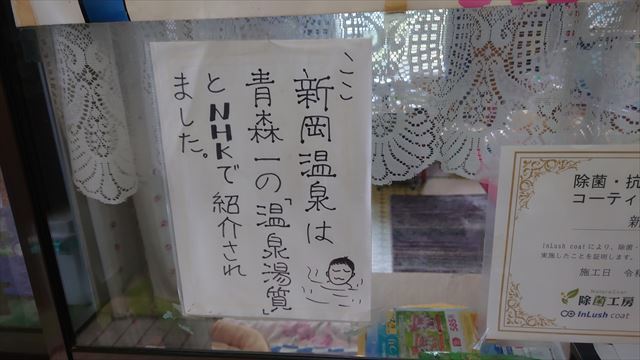 ここ
新岡温泉は
青森一の「温泉湯質」
とNHKで紹介され
ました。
除菌・抗
コーティ
新
InLush coatにより、除菌・
実施したことを証明します。
施工日 令和
NatureCoat
除菌工房
InLush coat